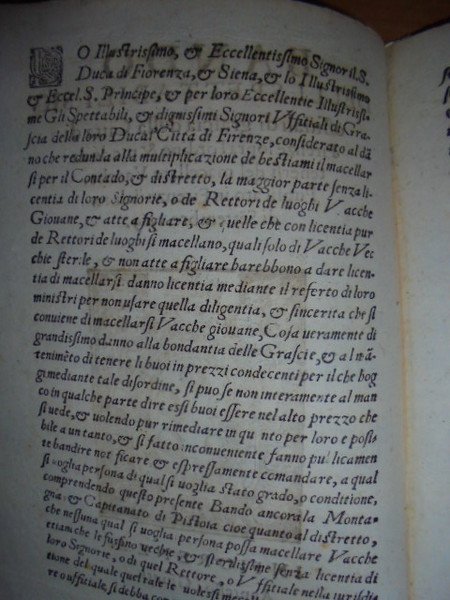 LO Illustrissimo, & Eccellentissimo Signor il. S.
Duca di Fiorenza, & Siena, & lo Illustrissimo
& Eccel. S. Principe, & per loro Eccellentie Illustrissi
me Gli Spettabili, & dignissimi Signori Vffitiali di Gra
scia della loro Ducal Città di Firenze, considerato al dā
no che redunda alla multiplicazione de bestiami il macellar
si per il Contado, & distretto, la maggior parte senza li
centia di loro Signorie, o de Rettori de luoghi Vacche
Giouane, & atte a figliare, & quelle che con licentia pur
de Rettori de luoghi si macellano, quali solo di Vacche Vec
chie sterile, & non atte a figliare harebbono a dare licen
tia di macellarsi danno licentia mediante il referto di loro
ministri per non usare quella diligentia, & sincerita che si
conuiene di macellarsi Vacche giouane, Cosa ueramente di
grandissimo danno alla bondantia delle Grascie, & al mā
tenimēto di tenere li buoi in prezzi condecenti per il che hog
gi mediante tale disordine, si puo se non interamente al man
co in qualche parte dire essi buoi essere nel alto prezzo che
si uede, & uolendo pur rimediare in quāto per loro e possi
bile a un tanto, & si fatto inconueniente fanno publicamen
te bandire notificare & espressamente comandare, a qual
si uoglia persona di qual si uoglia stato grado, o conditione,
comprendendo questo presente Bando ancora la Monta
gna & Capitanato di Pistoia cioe quanto al distretto,
che nessuna qual si uoglia persona possa macellare Vacche
etiam che le fussino uecchie, & sterilissime senza licentia di
loro Signorie, o di quel Rettore, o Vffitiale nella iuridit
tione del quale quel tale le uolessi
re o uffitiale si debba